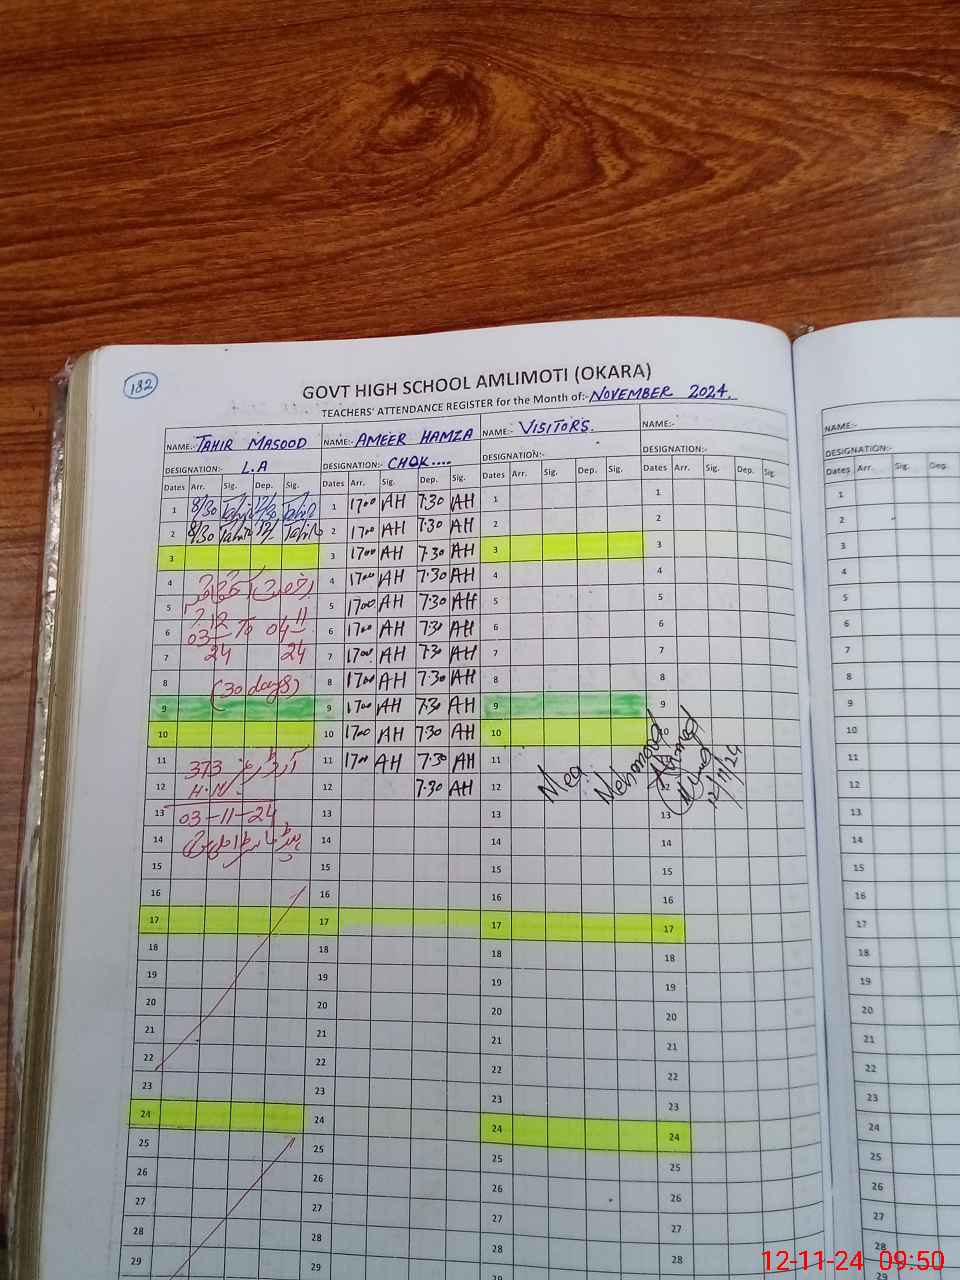 182
GOVT HIGH SCHOOL AMLIMOTI (OKARA)
TEACHERS' ATTENDANCE REGISTER for the Month of:- NOVEMBER 2024.
NAME:- TAHIR MASOOD NAME:- AMEER HAMZA NAME:- VISITORS. NAME:- NAME:-
DESIGNATION:- L.A DESIGNATION:- CHOK.... DESIGNATION:- DESIGNATION:- DESIGNATION:-
Dates Arr. Sig. Dep. Sig. Dates Arr. Sig. Dep. Sig. Dates Arr. Sig. Dep. Sig. Dates Arr. Sig. Dep. Sig. Dates Arr. Sig. Dep.
1 8/30 Tahir 12/30 Tahir 1 1700 AH 7:30 AH 1 1 1
2 8/30 Tahir 12/- Tahir 2 1700 AH 7:30 AH 2 2 2
3 3 1700 AH 7:30 AH 3 3 3
4 4 1700 AH 7:30 AH 4 4 4
5 5 1700 AH 7:30 AH 5 5 5
6 03-12-24 To 04-11-24 6 1700 AH 7:30 AH 6 6 6
7 7 1700 AH 7:30 AH 7 7 7
8 (30 days) 8 1700 AH 7:30 AH 8 8 8
9 9 1700 AH 7:30 AH 9 9 9
10 10 1700 AH 7:30 AH 10 10 10
11 373 11 1700 AH 7:30 AH 11 11
12 H.M 12 7:30 AH 12 12
13 03-11-24 13 13 13 13
14 14 14 14 14
Mea Mehmood Ahmed
12/11/24
15 15 15 15 15
16 16 16 16 16
17 17 17 17 17
18 18 18 18 18
19 19 19 19 19
20 20 20 20 20
21 21 21 21 21
22 22 22 22 22
23 23 23 23 23
24 24 24 24 24
25 25 25 25 25
26 26 26 26 26
27 27 27 27 27
28 28 28 28 28
29 29 29 29
12-11-24 09:50